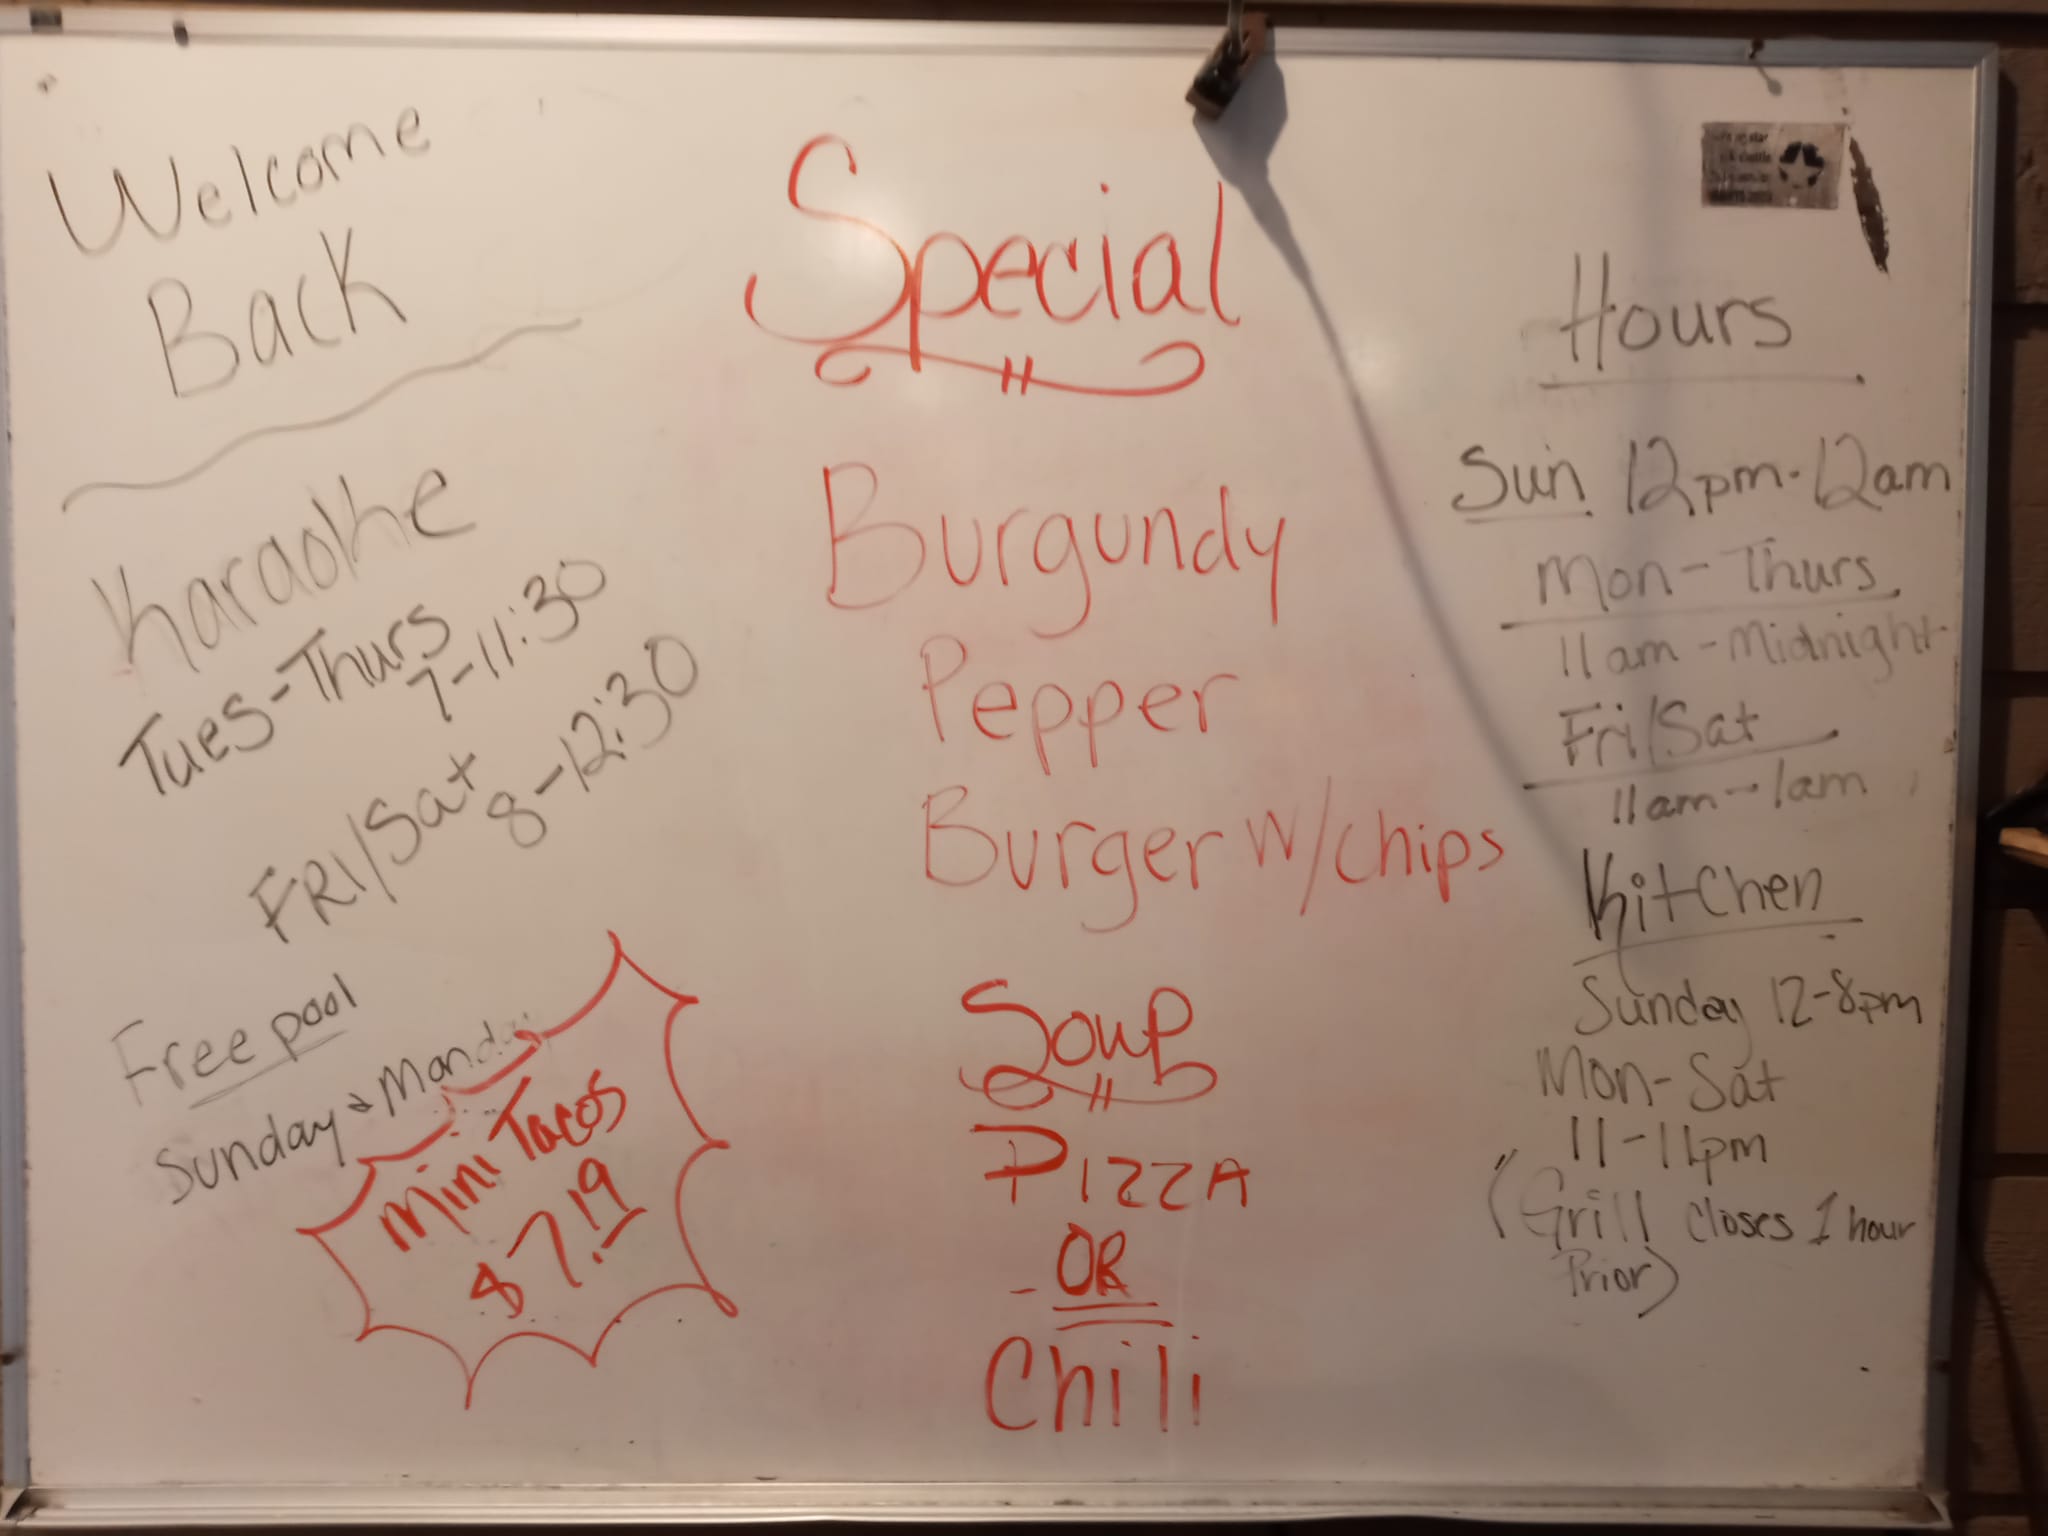 Welcome
Back
Karaoke
Tues-Thurs
7-11:30
FRI/Sat
8-12:30
Free pool
Sunday & Monday
Mini Tacos
$7.19
Special
Burgundy
Pepper
Burger w/chips
Soup
PIZZA
- OR
Chili
Hours
Sun 12pm-12am
Mon-Thurs
11am-Midnight
Fri/Sat
11am-1am
Kitchen
Sunday 12-8pm
Mon-Sat
11-11pm
(Grill closes 1 hour
Prior)